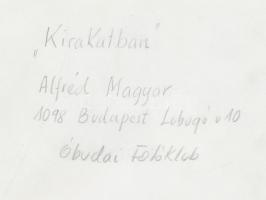 „Kirakatban"
Alfréd Magyar
1098 Budapest Lobogó u 10
Óbudai Fotóklub